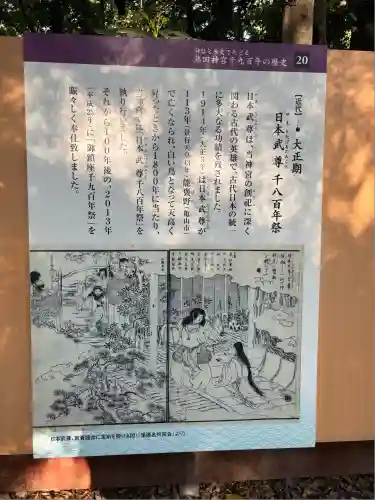 神話と歴史でたどる
熱田神宮千九百年の歴史
20
【近代】 ● 大正期
日本武尊千八百年祭
やまとたけるのみこと
日本武尊は、当神宮の創祀に深く
関わる古代の英雄で、古代日本の統一
に多大なる功績を残されました。
1914年(大正3年)は日本武尊が
113年(景行天皇43年)能褒野(亀山市)
で亡くなられ、白い鳥となって天高く
昇ったときから1800年に当たり、
当神宮では「日本武尊千八百年祭」を
執り行いました。
それから100年後の、2013年
(平成25年)に「御鎮座千九百年祭」を
賑々しく奉仕致しました。